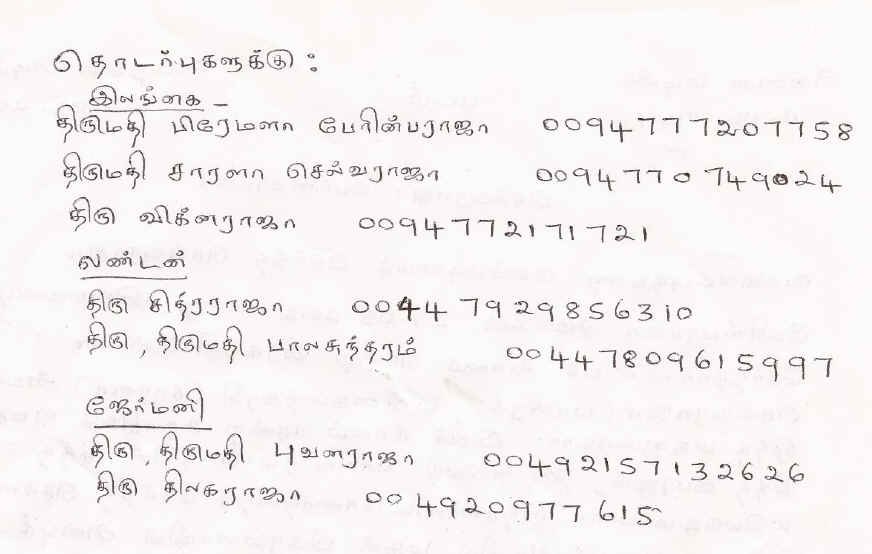 தொடர்புகளுக்கு :
இலங்கை -
திருமதி பிரேமளா பேரின்பராஜா 0094777207758
திருமதி சாரளா செல்வராஜா 0094770749024
திரு விக்னராஜா 0094772171721
லண்டன்
திரு சித்ரராஜா 0044 7929856310
திரு , திருமதி பாலசுந்தரம் 00447809615997
ஜேர்மனி
திரு , திருமதி புவனராஜா 0049215713262​6
திரு திலகராஜா 004920977615